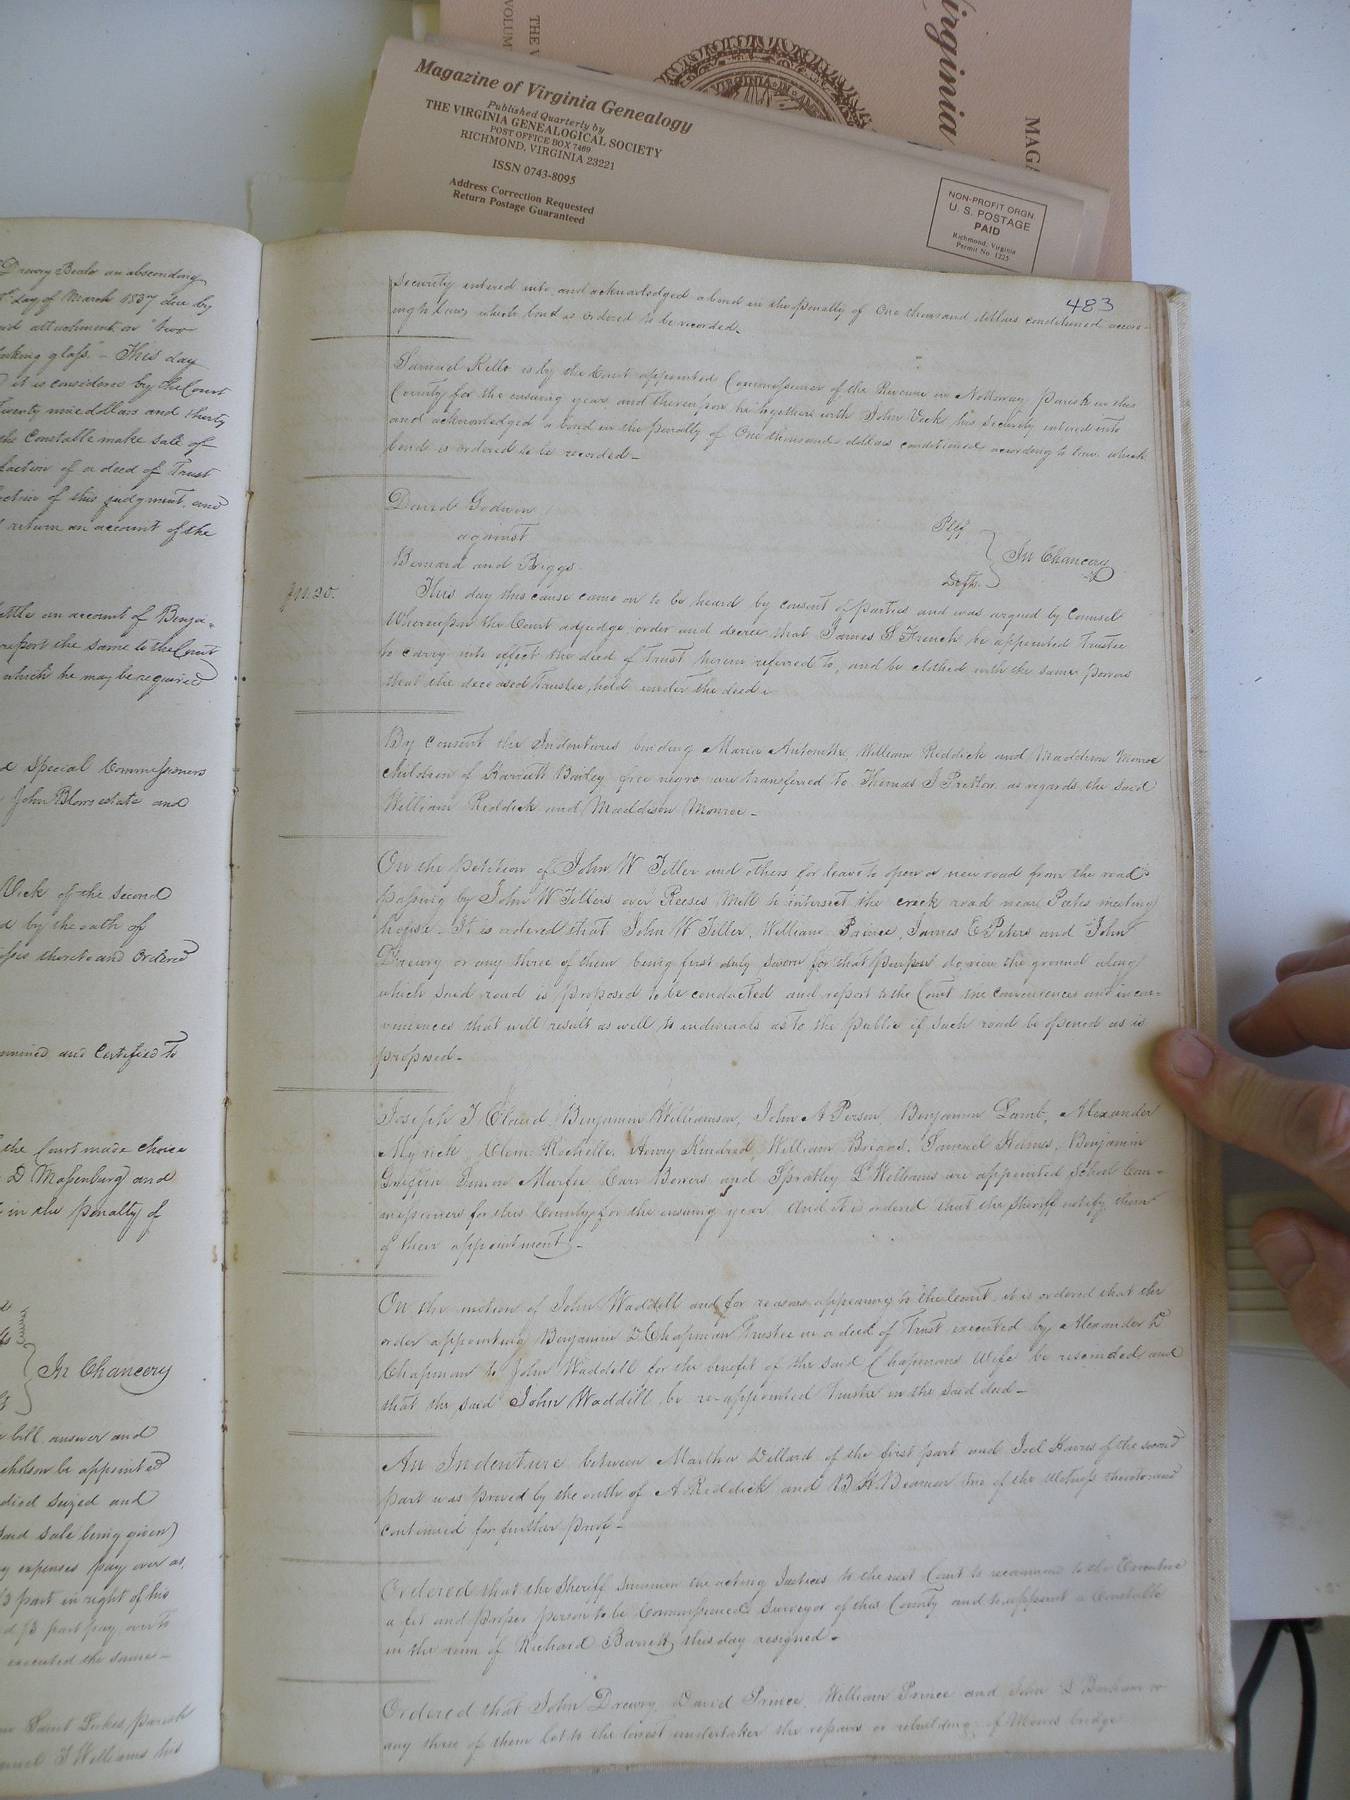 Virginia
MAG
THE V
VOLUM
VIRGINIA
Magazine of Virginia Genealogy
Published Quarterly by
THE VIRGINIA GENEALOGICAL SOCIETY
POST OFFICE BOX 7469
RICHMOND, VIRGINIA 23221
ISSN 0743-8095
Address Correction Requested
Return Postage Guaranteed
NON-PROFIT ORGN.
U. S. POSTAGE
PAID
Richmond, Virginia
Permit No 1225
Drewry Beale an absconding
day of March 1837 due by
attachment on "two
looking glass" - This day
it is considered by the Court
twenty nine dollars and thirty
the Constable make sale of
faction of a deed of Trust
faction of this judgment, and
return an account of the
settle an account of Benja-
report the same to the Court
which he may be required
Special Commissioners
John Blows estate and
Vick of the second
by the oath of
thereto and Ordered
and Certified to
the Court made choice
D Massenburg and
in the penalty of
In Chancery
bill answer and
be appointed
died seized and
said sale being given)
expenses pay over as
part in right of his
part pay over to
executed the same -
Saint Lukes parish
Williams his
483
Security entered into and acknowledged a bond in the penalty of One thousand dollars conditioned accor-
ing to Law, which bond is ordered to be recorded.
Samuel Kello is by the Court appointed Commissioner of the Revenue in Nottoway Parish in this
County for the ensuing year, and thereupon he together with John Vick his security entered into
and acknowledged a bond in the penalty of One thousand dollars conditioned according to law which
bond is ordered to be recorded -
David Godwin Plff
against In Chancery
Bernard and Briggs Defts.
This day this cause came on to be heard by consent of parties and was argued by Counsel
Whereupon the Court adjudge order and decree that James S French be appointed Trustee
to carry into effect the deed of Trust herein referred to, and be clothed with the same powers
that the deceased Trustee held under the deed.
By consent the Indentures binding Maria Antonette, William Reddick and Maddison Monroe
children of Harriett Bailey free negro are transferred to Thomas S Pretlow as regards the said
William Reddick and Maddison Monroe -
On the petition of John W Tiller and others for leave to open a new road from the road
passing by John W Tillers over Reeses Mill to intersect the creek road near Peetes meeting
house - It is ordered that John W Tiller, William Prince, James E Peters and John
Drewry or any three of them being first duly sworn for that purpose do view the ground along
which said road is proposed to be conducted and report to the Court the conveniences and incon-
veniences that will result as well to individuals as to the public if such road be opened as is
proposed -
Joseph T Claud, Benjamin Williamson, John A Person, Benjamin Lamb, Alexander
Myrick, Clem Rochelle, Henry Kindred, William Briggs, Samuel Haines, Benjamin
Griffin Simon Murfee Carr Bowers and Spratley L Williams are appointed School Com-
missioners for this County for the ensuing year. And it is ordered that the Sheriff notify them
of their appointment -
On the motion of John Waddell and for reasons appearing to the Court, it is ordered that the
order appointing Benjamin Chapman Trustee in a deed of Trust executed by Alexander
Chapman to John Waddell for the benefit of the said Chapmans Wife be rescinded and
that the said John Waddill be re-appointed Trustee in the said deed -
An Indenture between Martha Dillard of the first part and Joel Harris of the second
part was proved by the oath of A Reddick and B H Beaman two of the Witness thereto and
continued for further proof -
Ordered that the Sheriff summon the acting Justices to the next Court to recommend to the Executive
a fit and proper person to be Commissioned Surveyor of this County and to appoint a Constable
in the room of Richard Barrett, this day resigned -
Ordered that John Drewry, David Prince, William Prince and John or
any three of them let to the lowest undertaker the repairs or rebuilding of bridge